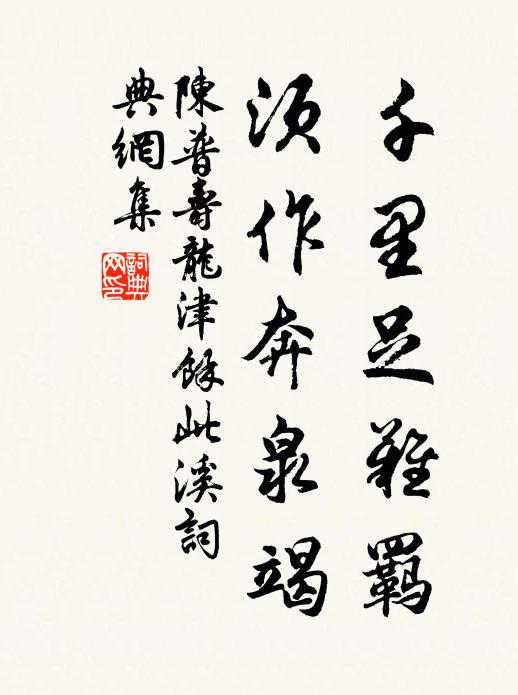 千里足難羈
須作奔泉竭
陳普壽龍津餘此溪詞
典網集
詞典網印